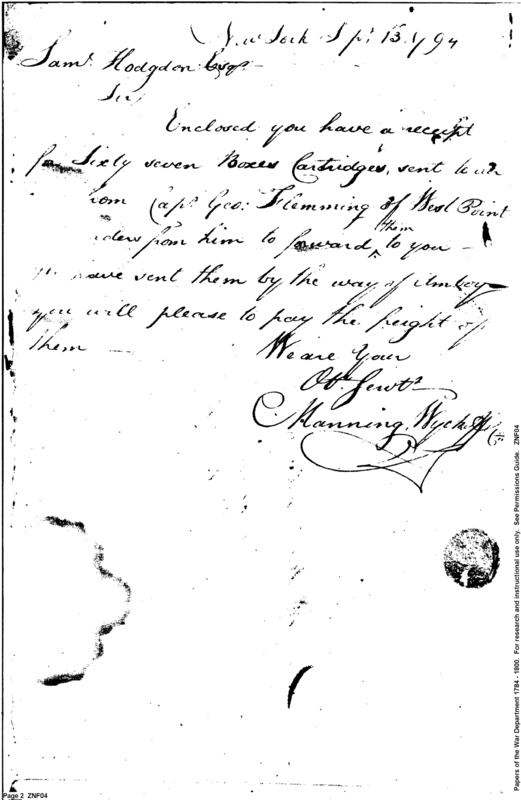 New York Sp.r 13. 1794
Sam.l Hodgdon Esq.r
Sir
Enclosed you have a receipt
for Sixty seven Boxes Cartridges, sent to us
from Cap.t Geo: Flemming of West Point
orders from him to forward them to you —
we have sent them by the way of Amboy
you will please to pay the freight of
them
We are Your
Ob.t Serv.ts
Manning Wyckoff
Page 2 ZNF04
Papers of the War Department 1784 - 1800. For research and instructional use only. See Permissions Guide. ZNF04